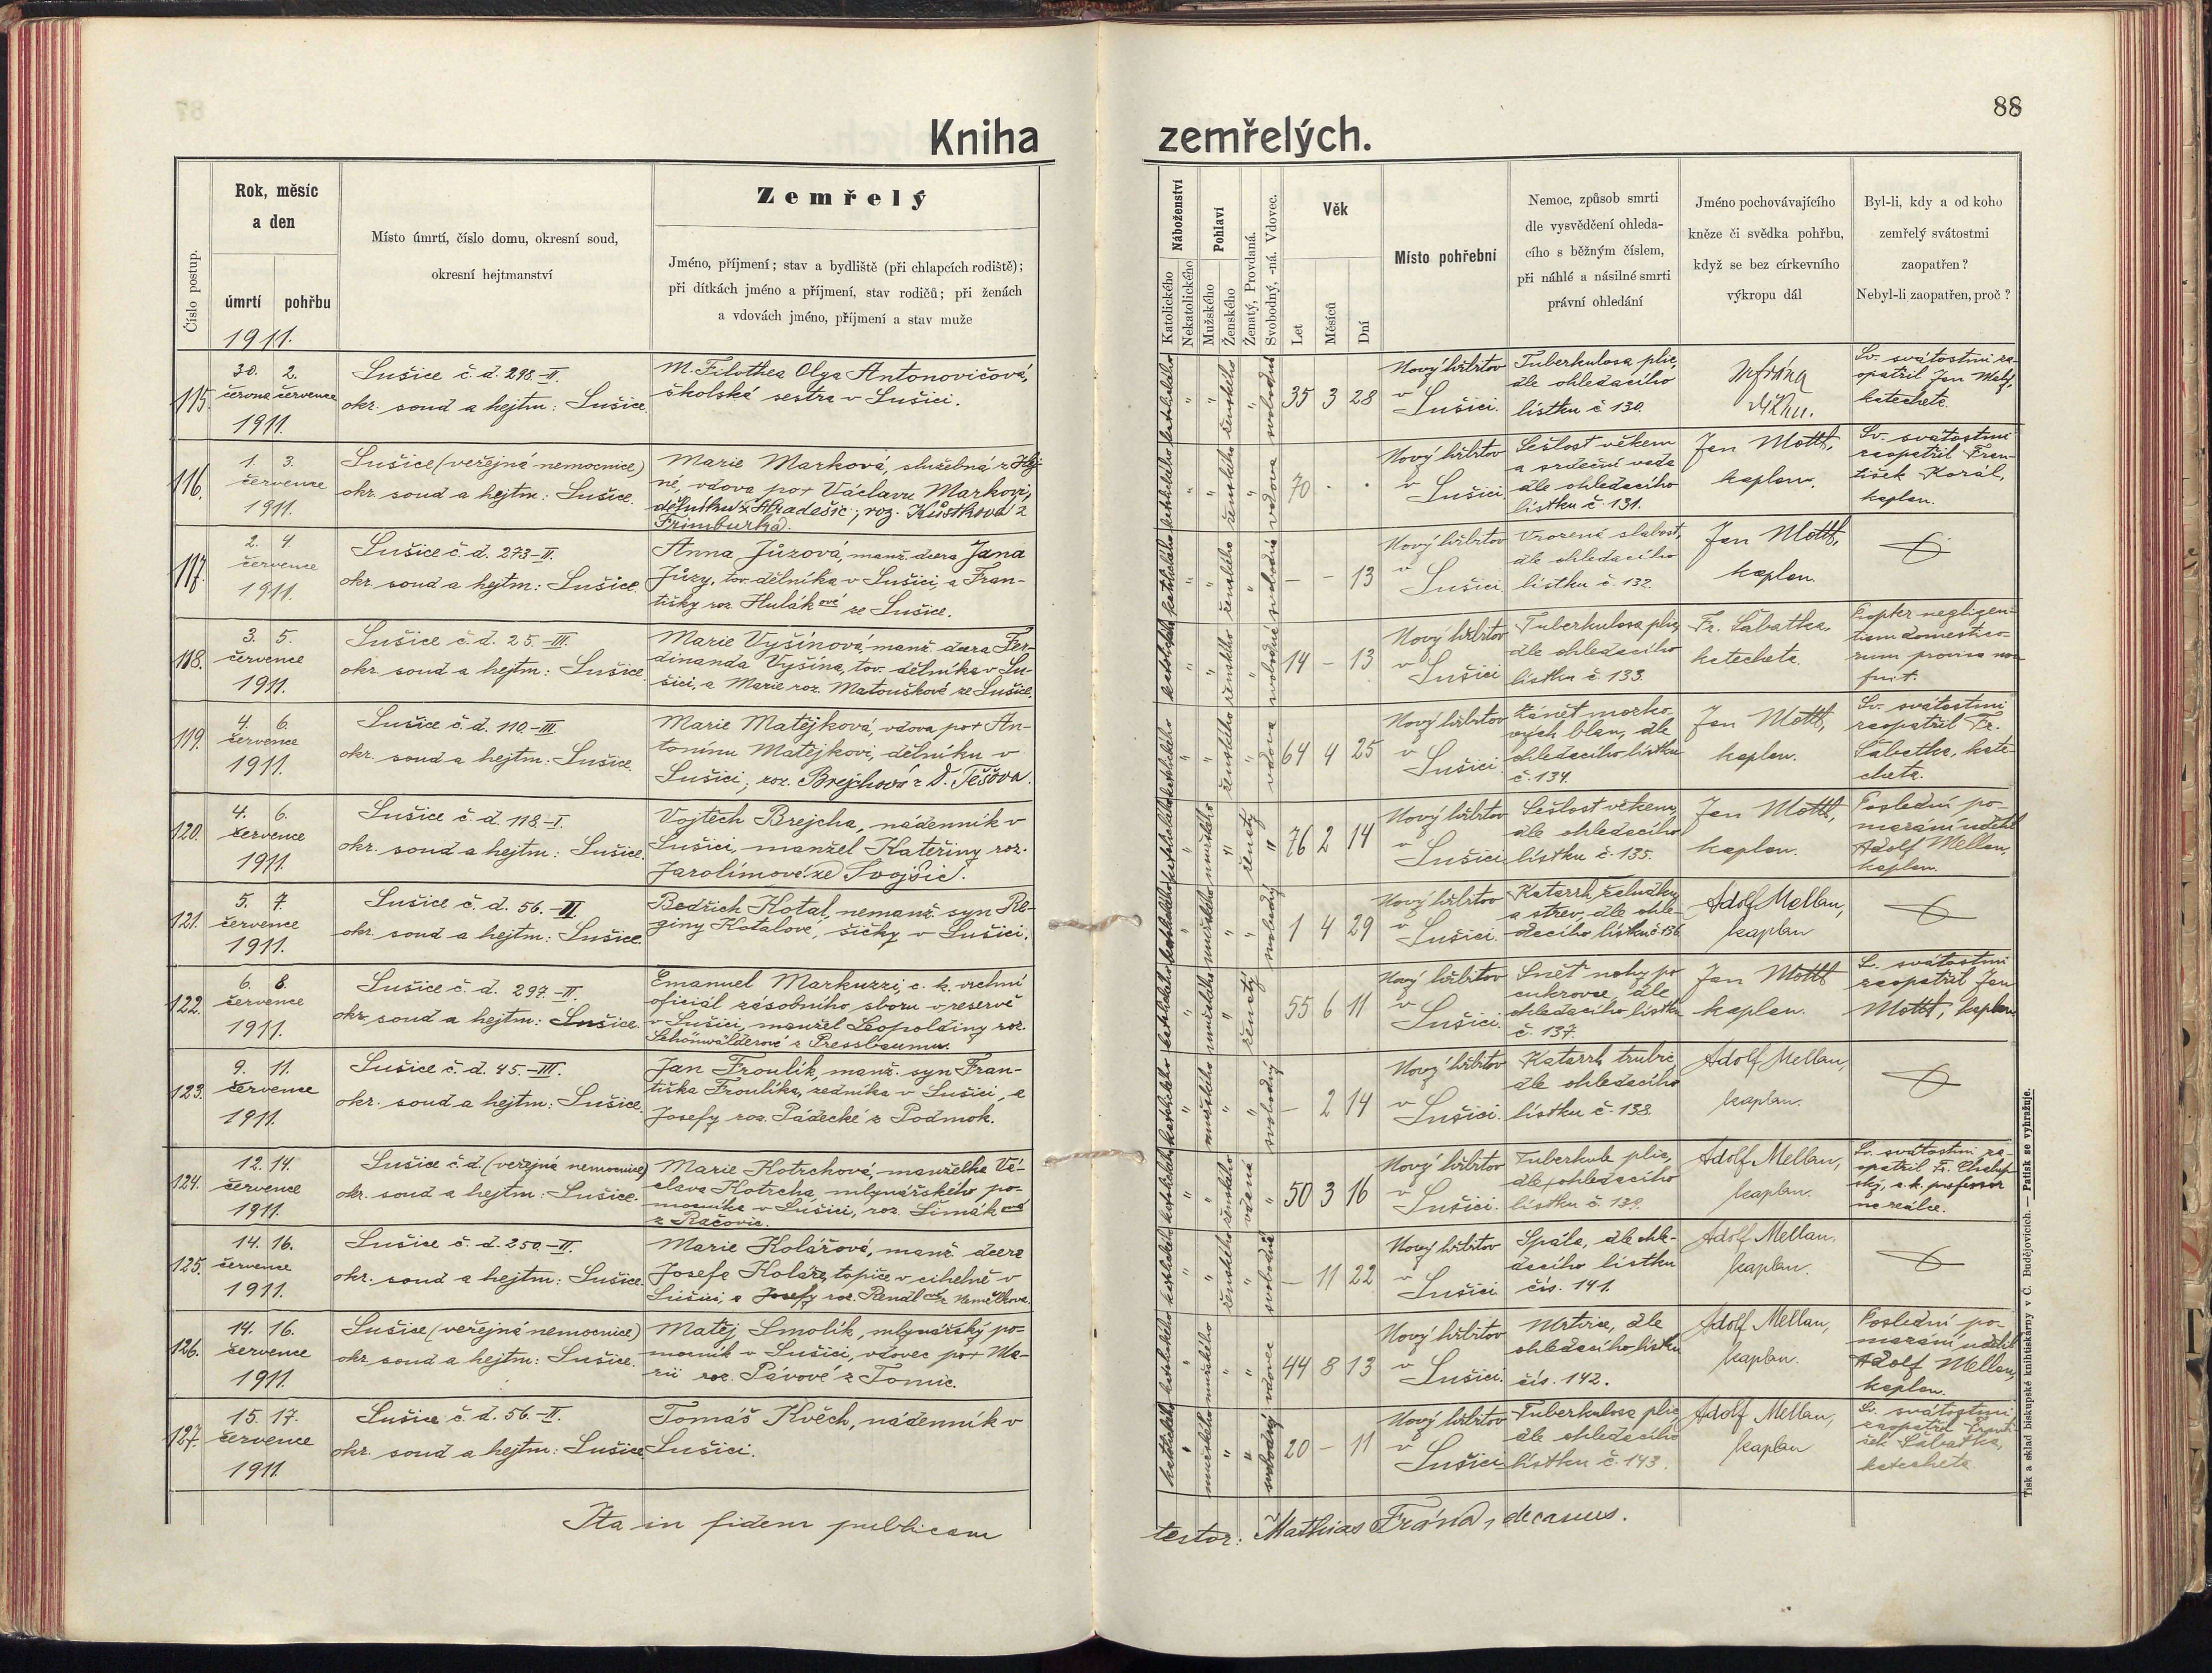 88
Kniha zemřelých.
Číslo postup.
Rok, měsíc
a den
úmrtí
pohřbu
1911.
Místo úmrtí, číslo domu, okresní soud,
okresní hejtmanství
Zemřelý
Jméno, příjmení; stav a bydliště (při chlapcích rodiště);
při dítkách jméno a příjmení, stav rodičů; při ženách
a vdovách jméno, příjmení a stav muže
Náboženství
Katolického
Nekatolického
Pohlaví
Mužského
Ženského
Ženatý, Provdaná.
Svobodný, -ná. Vdovec.
Věk
Let
Měsíců
Dní
Místo pohřební
Nemoc, způsob smrti
dle vysvědčení ohleda-
cího s běžným číslem,
při náhlé a násilné smrti
právní ohledání
Jméno pochovávajícího
kněze či svědka pohřbu,
když se bez církevního
výkropu dál
Byl-li, kdy a od koho
zemřelý svátostmi
zaopatřen?
Nebyl-li zaopatřen, proč?
115.
30. 2.
června července
1911.
Sušice č. d. 298-II.
okr. soud a hejtm: Sušice.
M. Filothea Olga Antonovičová,
školská sestra v Sušici.
katolického " " ženského " svobodná
35 3 28
Nový hřbitov
v
Sušici.
Tuberkulosa plic,
dle ohledacího
lístku č 130.
Sv. svátostmi za-
opatřil Jan
katecheta.
116.
1. 3.
července
1911.
Sušice (veřejná nemocnice)
okr. soud a hejtm: Sušice.
Marie Marková, služebná z
né, vdova po + Václavu Markovi,
dělníku z Hradešic, roz. Kůstková z
Frimburka.
katolického " " ženského " vdova
70 . .
Nový hřbitov
v
Sušici.
Sešlost věkem
a srdeční vada
dle ohledacího
lístku č. 131.
Jan Mottl,
kaplan.
Sv. svátostmi
zaopatřil Fran-
tišek Korál,
kaplan.
117.
2. 4.
července
1911.
Sušice č. d. 273-II.
okr. soud a hejtm: Sušice.
Anna Jůzová, manž. dcera Jana
Jůzy, tov. dělníka v Sušici, a Fran-
tišky roz. Hulákové ze Sušice.
katolického " " ženského " svobodná
- - 13
Nový hřbitov
v
Sušici
Vrozená slabost,
dle ohledacího
lístku č. 132.
Jan Mottl,
kaplan.
118.
3. 5.
července
1911.
Sušice č. d. 25-III.
okr. soud a hejtm: Sušice.
Marie Vyšínová, manž. dcera Fer-
dinanda Vyšína, tov. dělníka v Su-
šici, a Marie roz. Matouškové ze Sušice.
katolického " " ženského " svobodná
14 - 13
Nový hřbitov
v
Sušici
Tuberkulosa plic,
dle ohledacího
lístku č. 133.
Fr. Šabatka,
katecheta.
Propter negligen-
tiam domestico-
rum provisa non
fuit.
119.
4. 6.
července
1911.
Sušice č. d. 110-III.
okr. soud a hejtm. Sušice.
Marie Matějková, vdova po + An-
tonínu Matějkovi, dělníku v
Sušici, roz. Brejchová z D. Těšova.
katolického " " ženského " vdova
64 4 25
Nový hřbitov
v
Sušici.
Zánět mozko-
vých blan, dle
ohledacího lístku
č. 134.
Jan Mottl,
kaplan.
Sv. svátostmi
zaopatřil Fr.
Šabatka, kate-
cheta.
120.
4. 6.
července
1911.
Sušice č. d. 118-I.
okr. soud a hejtm: Sušice.
Vojtěch Brejcha, nádenník v
Sušici, manžel Kateřiny roz.
Jarolímové ze Svojšic.
katolického " mužského " ženatý "
76 2 14
Nový hřbitov
v
Sušici
Sešlost věkem,
dle ohledacího
lístku č. 135.
Jan Mottl,
kaplan.
Poslední po-
mazání udělil
Adolf Mellan,
kaplan.
121.
5. 7
července
1911.
Sušice č. d. 56.-II
okr. soud a hejtm: Sušice.
Bedřich Kotal, nemanž. syn Re-
giny Kotalové, šičky v Sušici.
katolického " mužského " " svobodný
1 4 29
Nový hřbitov
v
Sušici.
Katarrh žaludku
a střev, dle ohle-
dacího lístku č. 136
Adolf Mellan,
kaplan
122.
6. 8.
července
1911.
Sušice č. d. 297.-II.
okr. soud a hejtm: Sušice.
Emanuel Markuzzi, c. k. vrchní
oficiál zásobního sboru v reservě
v Sušici, manžel Leopoldiny roz.
Schönwälderové z Pressbaumu.
katolického " mužského " ženatý
55 6 11
Nový hřbitov
v
Sušici.
Snět nohy po
cukrovce, dle
ohledacího lístku
č. 137.
Jan Mottl
kaplan.
S. svátostmi
zaopatřil Jan
Mottl, kaplan
123.
9. 11.
července
1911.
Sušice č. d. 45.-III.
okr. soud a hejtm: Sušice.
Jan Froulík, manž. syn Fran-
tiška Froulíka, zedníka v Sušici, a
Josefy roz. Pádecké z Podmok.
katolického " mužského " " svobodný
- 2 14
Nový hřbitov
v
Sušici.
Katarrh trubic
dle ohledacího
lístku č. 138.
Adolf Mellan,
kaplan.
124.
12. 14.
července
1911.
Sušice č. d. (veřejná nemocnice)
okr. soud a hejtm: Sušice.
Marie Kotrchová, manželka Vá-
clava Kotrcha, mlynářského po-
mocníka v Sušici, roz. Šimáková
z Račovic.
katolického " " ženského vdaná "
50 3 16
Nový hřbitov
v
Sušici.
Tuberkule plic,
dle ohledacího
lístku č. 139.
Adolf Mellan,
kaplan.
Sv. svátostmi za-
opatřil Fr. Chalup-
ský, c. k. professor
na reálce.
125.
14. 16.
července
1911.
Sušice č. d. 250-II.
okr. soud a hejtm: Sušice.
Marie Kolářová, manž. dcera
Josefa Koláře, topiče v cihelně v
Sušici, a Josefy roz. Rendlové z Nemělkova.
katolického " " ženského " svobodná
- 11 22
Nový hřbitov
v
Sušici
Spála, dle ohle-
dacího lístku
čís. 141.
Adolf Mellan.
kaplan.
126.
14. 16.
července
1911.
Sušice (veřejná nemocnice)
okr. soud a hejtm: Sušice.
Matěj Smolík, mlynářský po-
mocník v Sušici, vdovec po + Ma-
rii roz. Pávové z Tomic.
katolického " mužského " " vdovec
44 8 13
Nový hřbitov
v
Sušici.
Mrtvice, dle
ohledacího lístku
čís. 142.
Adolf Mellan,
kaplan.
Poslední po-
mazání udělil
Adolf Mellan,
kaplan.
127.
15. 17.
července
1911.
Sušice č. d. 56.-II.
okr. soud a hejtm: Sušice
Tomáš Kvěch, nádenník v
Sušici.
katolického " mužského " " svobodný
20 - 11
Nový hřbitov
v
Sušici
Tuberkulosa plic,
dle ohledacího
lístku č. 143.
Adolf Mellan,
kaplan
Sv. svátostmi
zaopatřil Franti-
šek Šabatka,
katecheta.
Ita in fidem publicam
testor: Mathias Frána, decanus.
Tisk a sklad biskupské knihtiskárny v Č. Budějovicích. — Patisk se vyhražuje.